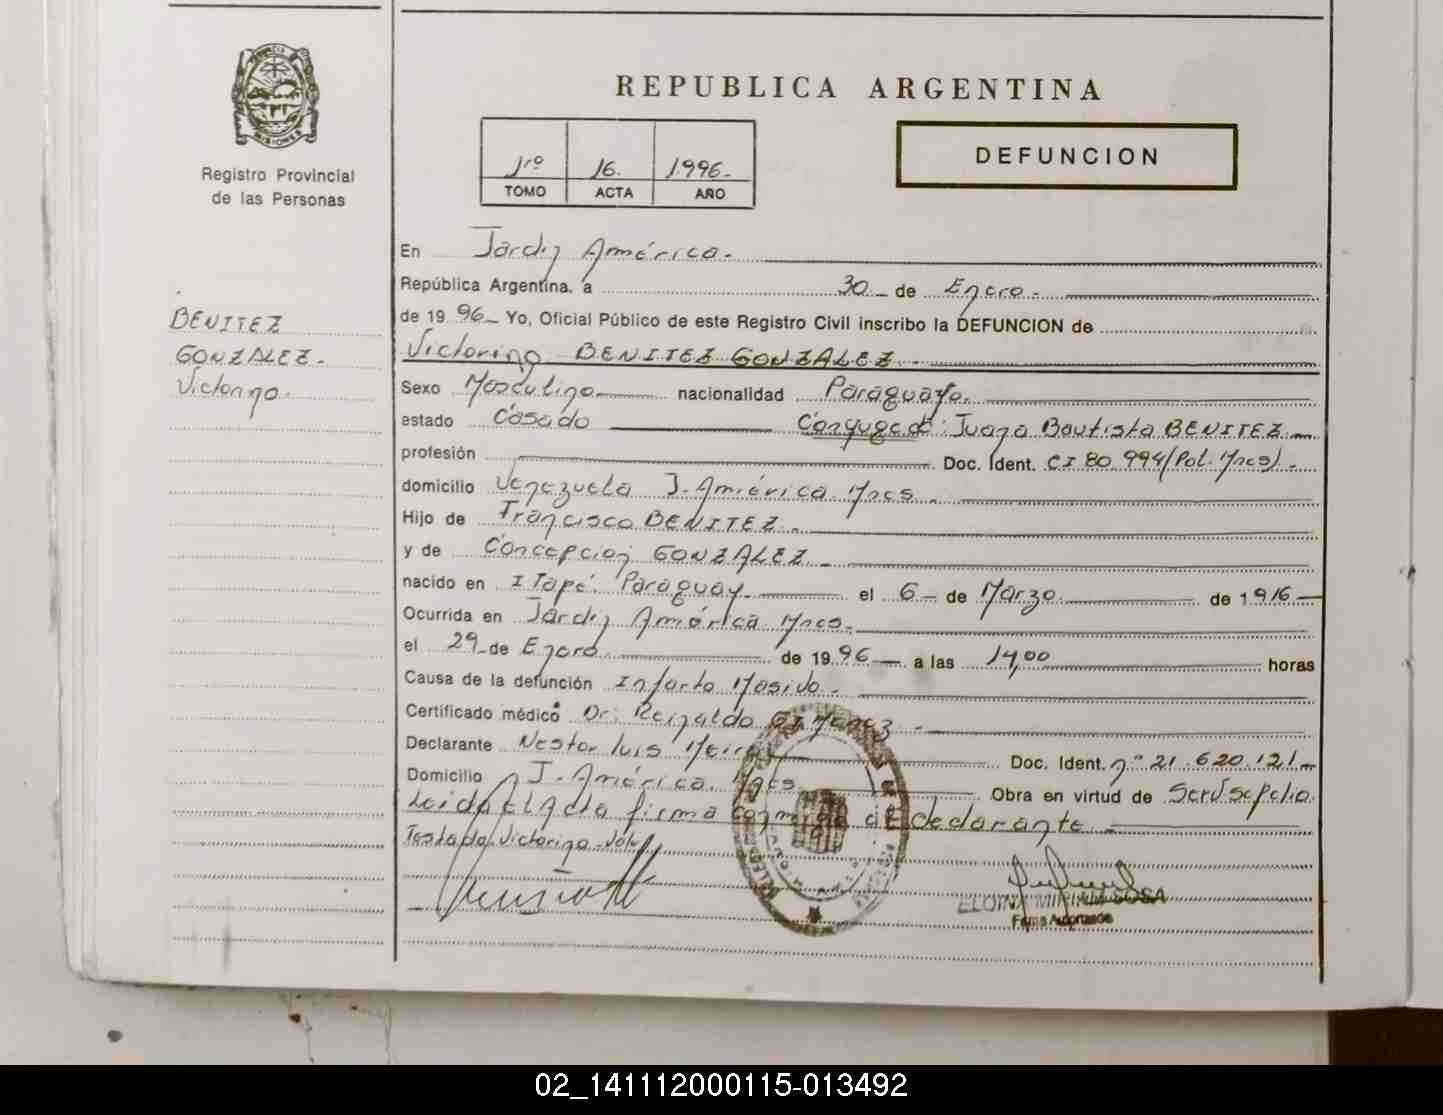 MISIONES
Registro Provincial
de las Personas
BENITEZ
GONZALEZ.
Victorino.
REPUBLICA ARGENTINA
1ro 16. 1.996.-
TOMO ACTA AÑO
DEFUNCION
En Jardin América.-
República Argentina, a 30 - de Enero.-
de 19 96- Yo, Oficial Público de este Registro Civil inscribo la DEFUNCION de
Victorino BENITEZ GONZALEZ.-
Sexo Masculino nacionalidad Paraguayo.
estado Casado Conyuge de: Juana Bautista BENITEZ.-
profesión Doc. Ident. CI 80.994/Pol. Mnes).-
domicilio Venezuela J. América. Mnes.-
Hijo de Francisco BENITEZ.-
y de Concepcion GONZALEZ.-
nacido en ITapé. Paraguay. el 6- de Marzo de 1916-
Ocurrida en Jardin América Mnes.-
el 29- de Enero de 19 96-. a las 14,00 horas
Causa de la defunción Infarto Masivo.-
Certificado médico Dr: Reinaldo GIMENEZ.-
Declarante Nestor Luis Doc. Ident. nº 21.620.121-
Domicilio J. América. Mnes. Obra en virtud de Serv Sepelio
Leida el Acta firma conmigo el declarante.-
Testado/Victorino-Vale
ELOINA MIRIAM SOSA
Firma Autorizada
02_141112000115-013492